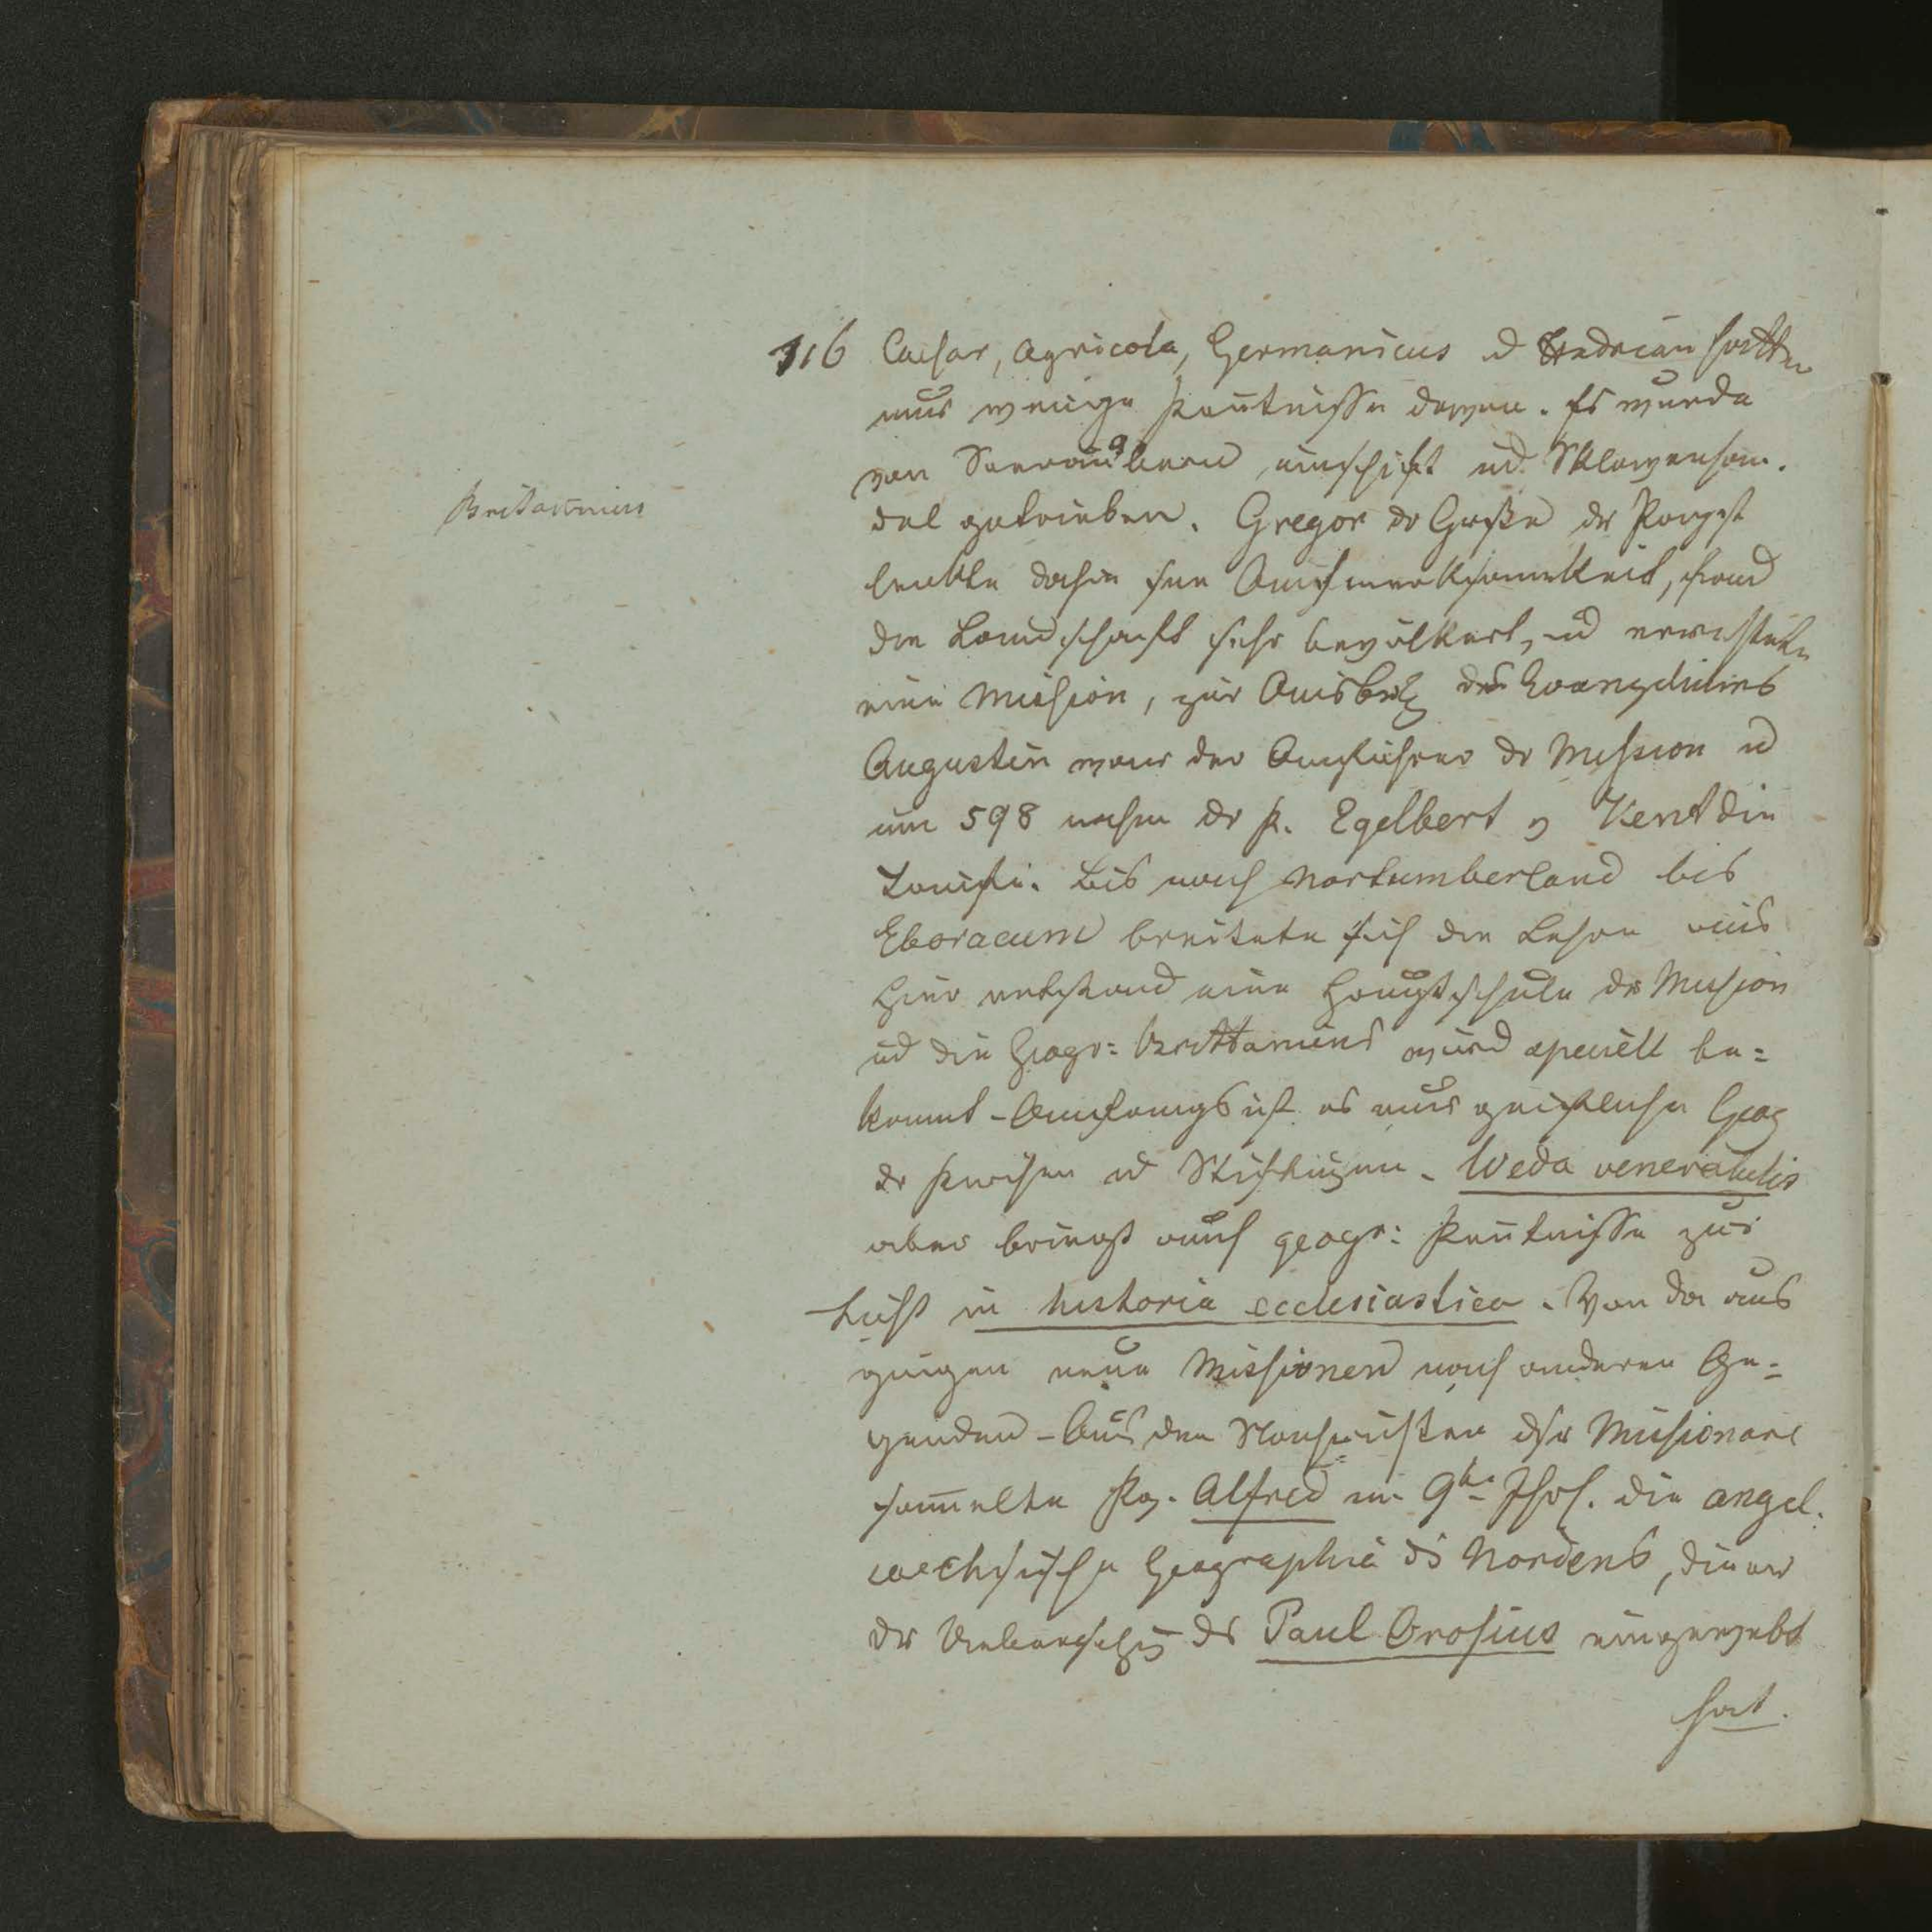 116 Caesar, Agricola, Germanicus u Hadrian hatten
nur wenige Kentnisse davon. Es wurde
von Seeräubern umschift ud. Sklavenhan-
Britannien
del getrieben. Gregor dr Große dr Papst
lenkte dahin sne Aufmerksamkeit, fand
die Landschaft sehr bevölkert, ud errichtete
eine Mission, zur Ausbrtg des Evangeliums
Augustin war der Anführer dr Mission u
um 598 nahm dr K. Egelbert v Kent die
Taufe. Bis nach Nortumberland bis
Eboracum breitete sich die Lehre aus
Hier entstand eine Hauptschule dr Mission
ud die Geogr: Brittaniens wird speciell be=
kannt – Anfangs ist es nur geistliche Geog
dr Kirchen ud Stiftungen. Weda venerabilis
aber bringt auch geogr: Kentnisse zur
Licht in historia ecclesiastica. Von da aus
gingen neue Missionen nach anderen Ge=
genden – Aus den Nachrichten dsr Missionare
samelte Kg. Alfred im 9tn Jhrh. die angel.
saechsische Geographie ds Nordens, die er
dr Uebersetzg ds Paul Orosius eingewebt
hat.